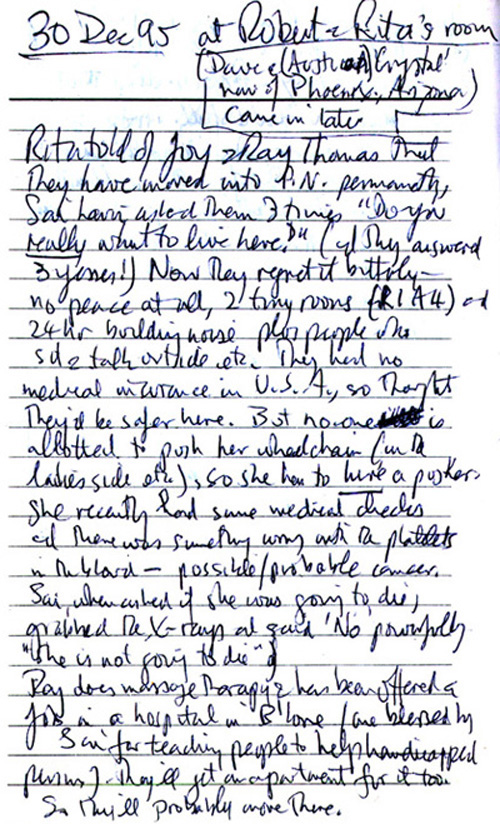 30 Dec 95 at Robert & Rita's room
(Dave & (Austrian) Crystal
now of Phoenix, Arizona)
Came in later
Rita told of Joy & Ray Thomas that
They have moved into P.N. permanently,
Sai having asked Them 3 times "Do you
really want to live here?" (& They answered
3 yesses!) Now They regret it bitterly –
no peace at all, 2 tiny rooms (R1A4) and
24 hr building noise plus people who
sit & talk outside etc. They had no
medical insurance in U.S.A., so Thought
They'd be safer here. But no-one is
allotted to push her wheelchair (in The
ladies side etc), so she has to hire a pusher.
She recently had some medical checks
and There was something wrong with The platelets
in The blood – possible/probable cancer.
Sai, when asked if she was going to die,
grabbed The X-rays and said 'No powerfully
"She is not going to die"
Ray does massage Therapy & has been offered a
job in a hospital in B'lore (one blessed by
Sai for teaching people to help handicapped
persons). They'll get an apartment for it too.
So They'll probably move There.